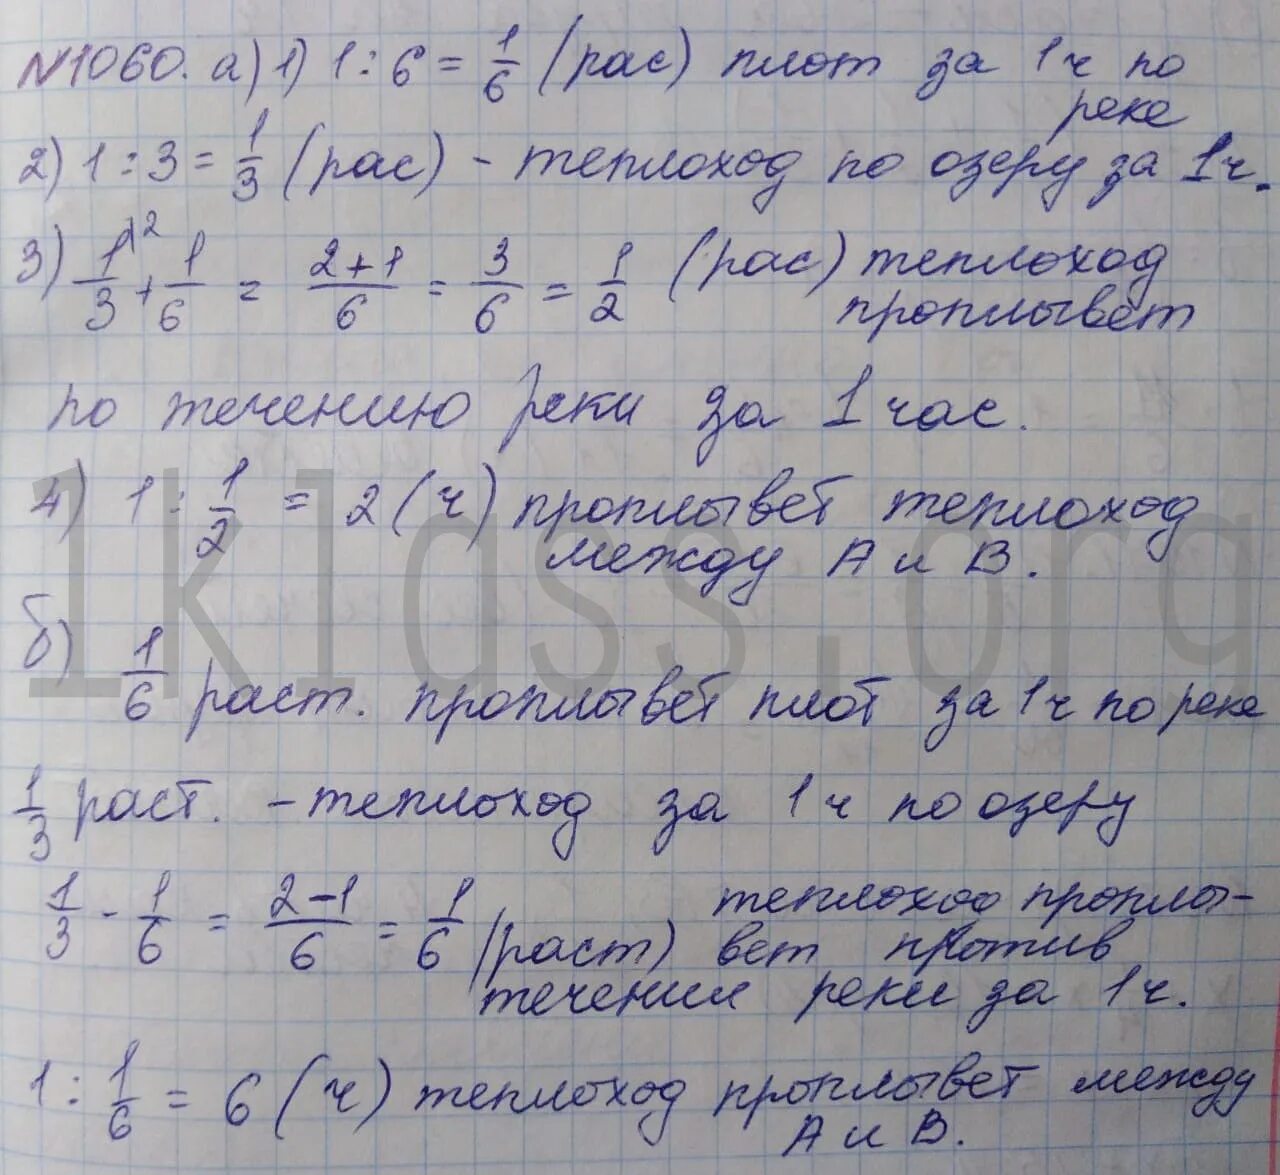 №1060. а) 1) 1 : 6 = 1/6 (рас) плот за 1ч по
реке
2) 1 : 3 = 1/3 (рас) - теплоход по озеру за 1ч.
3) 1/3 \2 + 1/6 = 2+1/6 = 3/6 = 1/2 (рас) теплоход
проплывёт
по течению реки за 1 час.
4) 1 : 1/2 = 2 (ч) проплывёт теплоход
между А и В.
б) 1/6 раст. проплывёт плот за 1ч по реке
1/3 раст. - теплоход за 1ч по озеру
1/3 - 1/6 = 2-1/6 = 1/6 (раст) теплоход проплы-
вет против
течения реки за 1ч.
1 : 1/6 = 6 (ч) теплоход проплывет между
А и В.
1klass.org